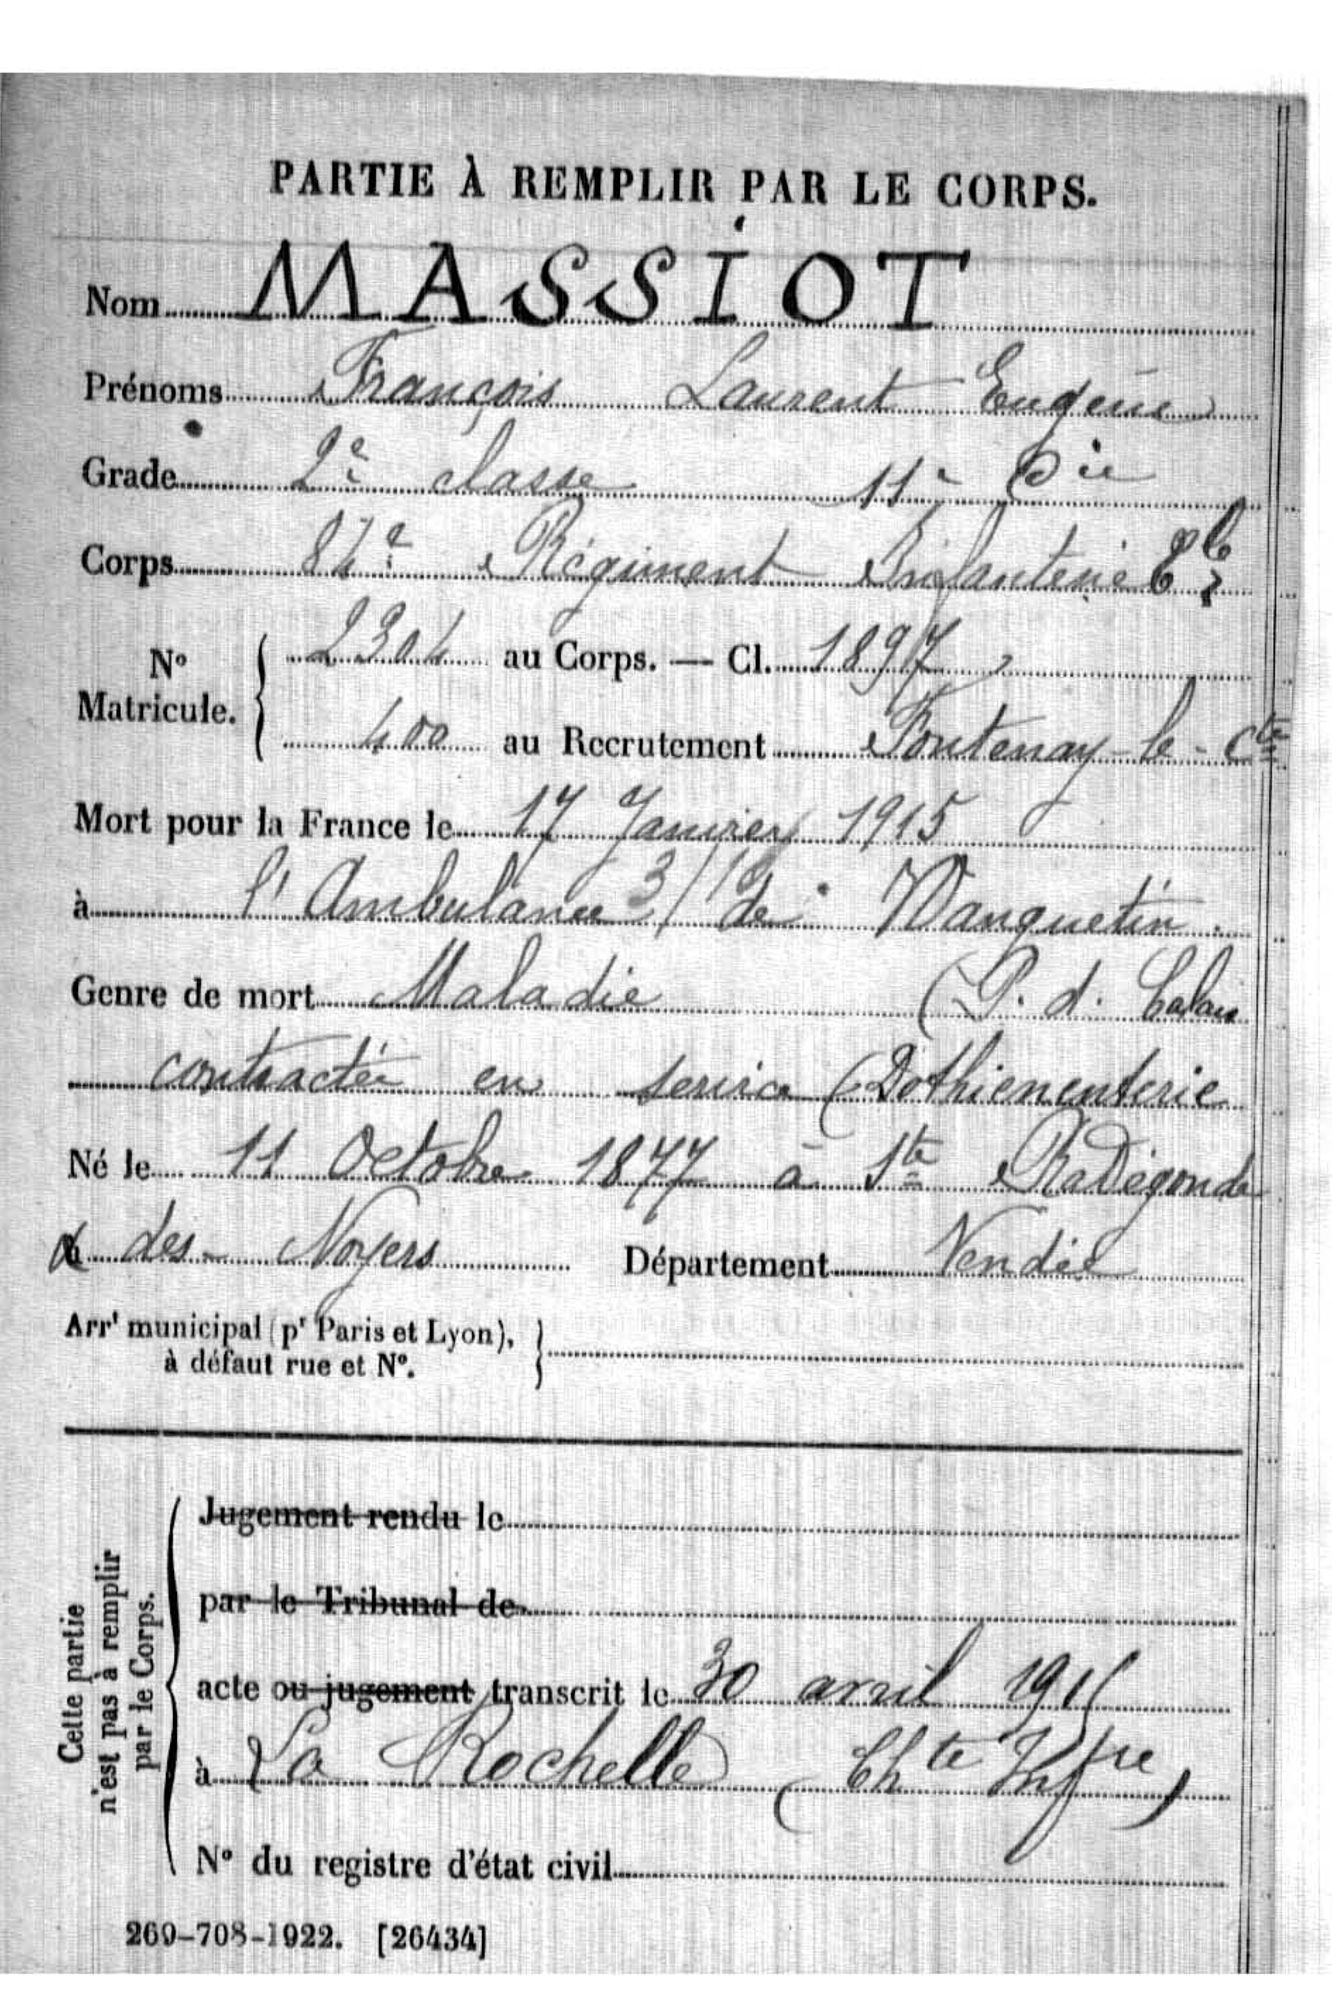 PARTIE À REMPLIR PAR LE CORPS.
Nom MASSIOT
Prénoms François Laurent Eugène
Grade 2e classe 11e Cie
Corps 84e Régiment Infanterie Tle
No Matricule. 2304 au Corps. — Cl. 1897
400 au Recrutement Fontenay-le-Cte
Mort pour la France le 17 Janvier 1915
à l'Ambulance 3/1 de Wanquetin
Genre de mort Maladie (P. d. Calais
contractée en service (Dothienenterie
Né le 11 Octobre 1877 à Ste Radégonde
des-Noyers Département Vendée
Arrt municipal (pr Paris et Lyon),
à défaut rue et No.
Cette partie
n'est pas à remplir
par le Corps.
Jugement rendu le
par le Tribunal de
acte ou jugement transcrit le 30 avril 1915
à La Rochelle (Chte Infre)
No du registre d'état civil
269-708-1922. [26434]